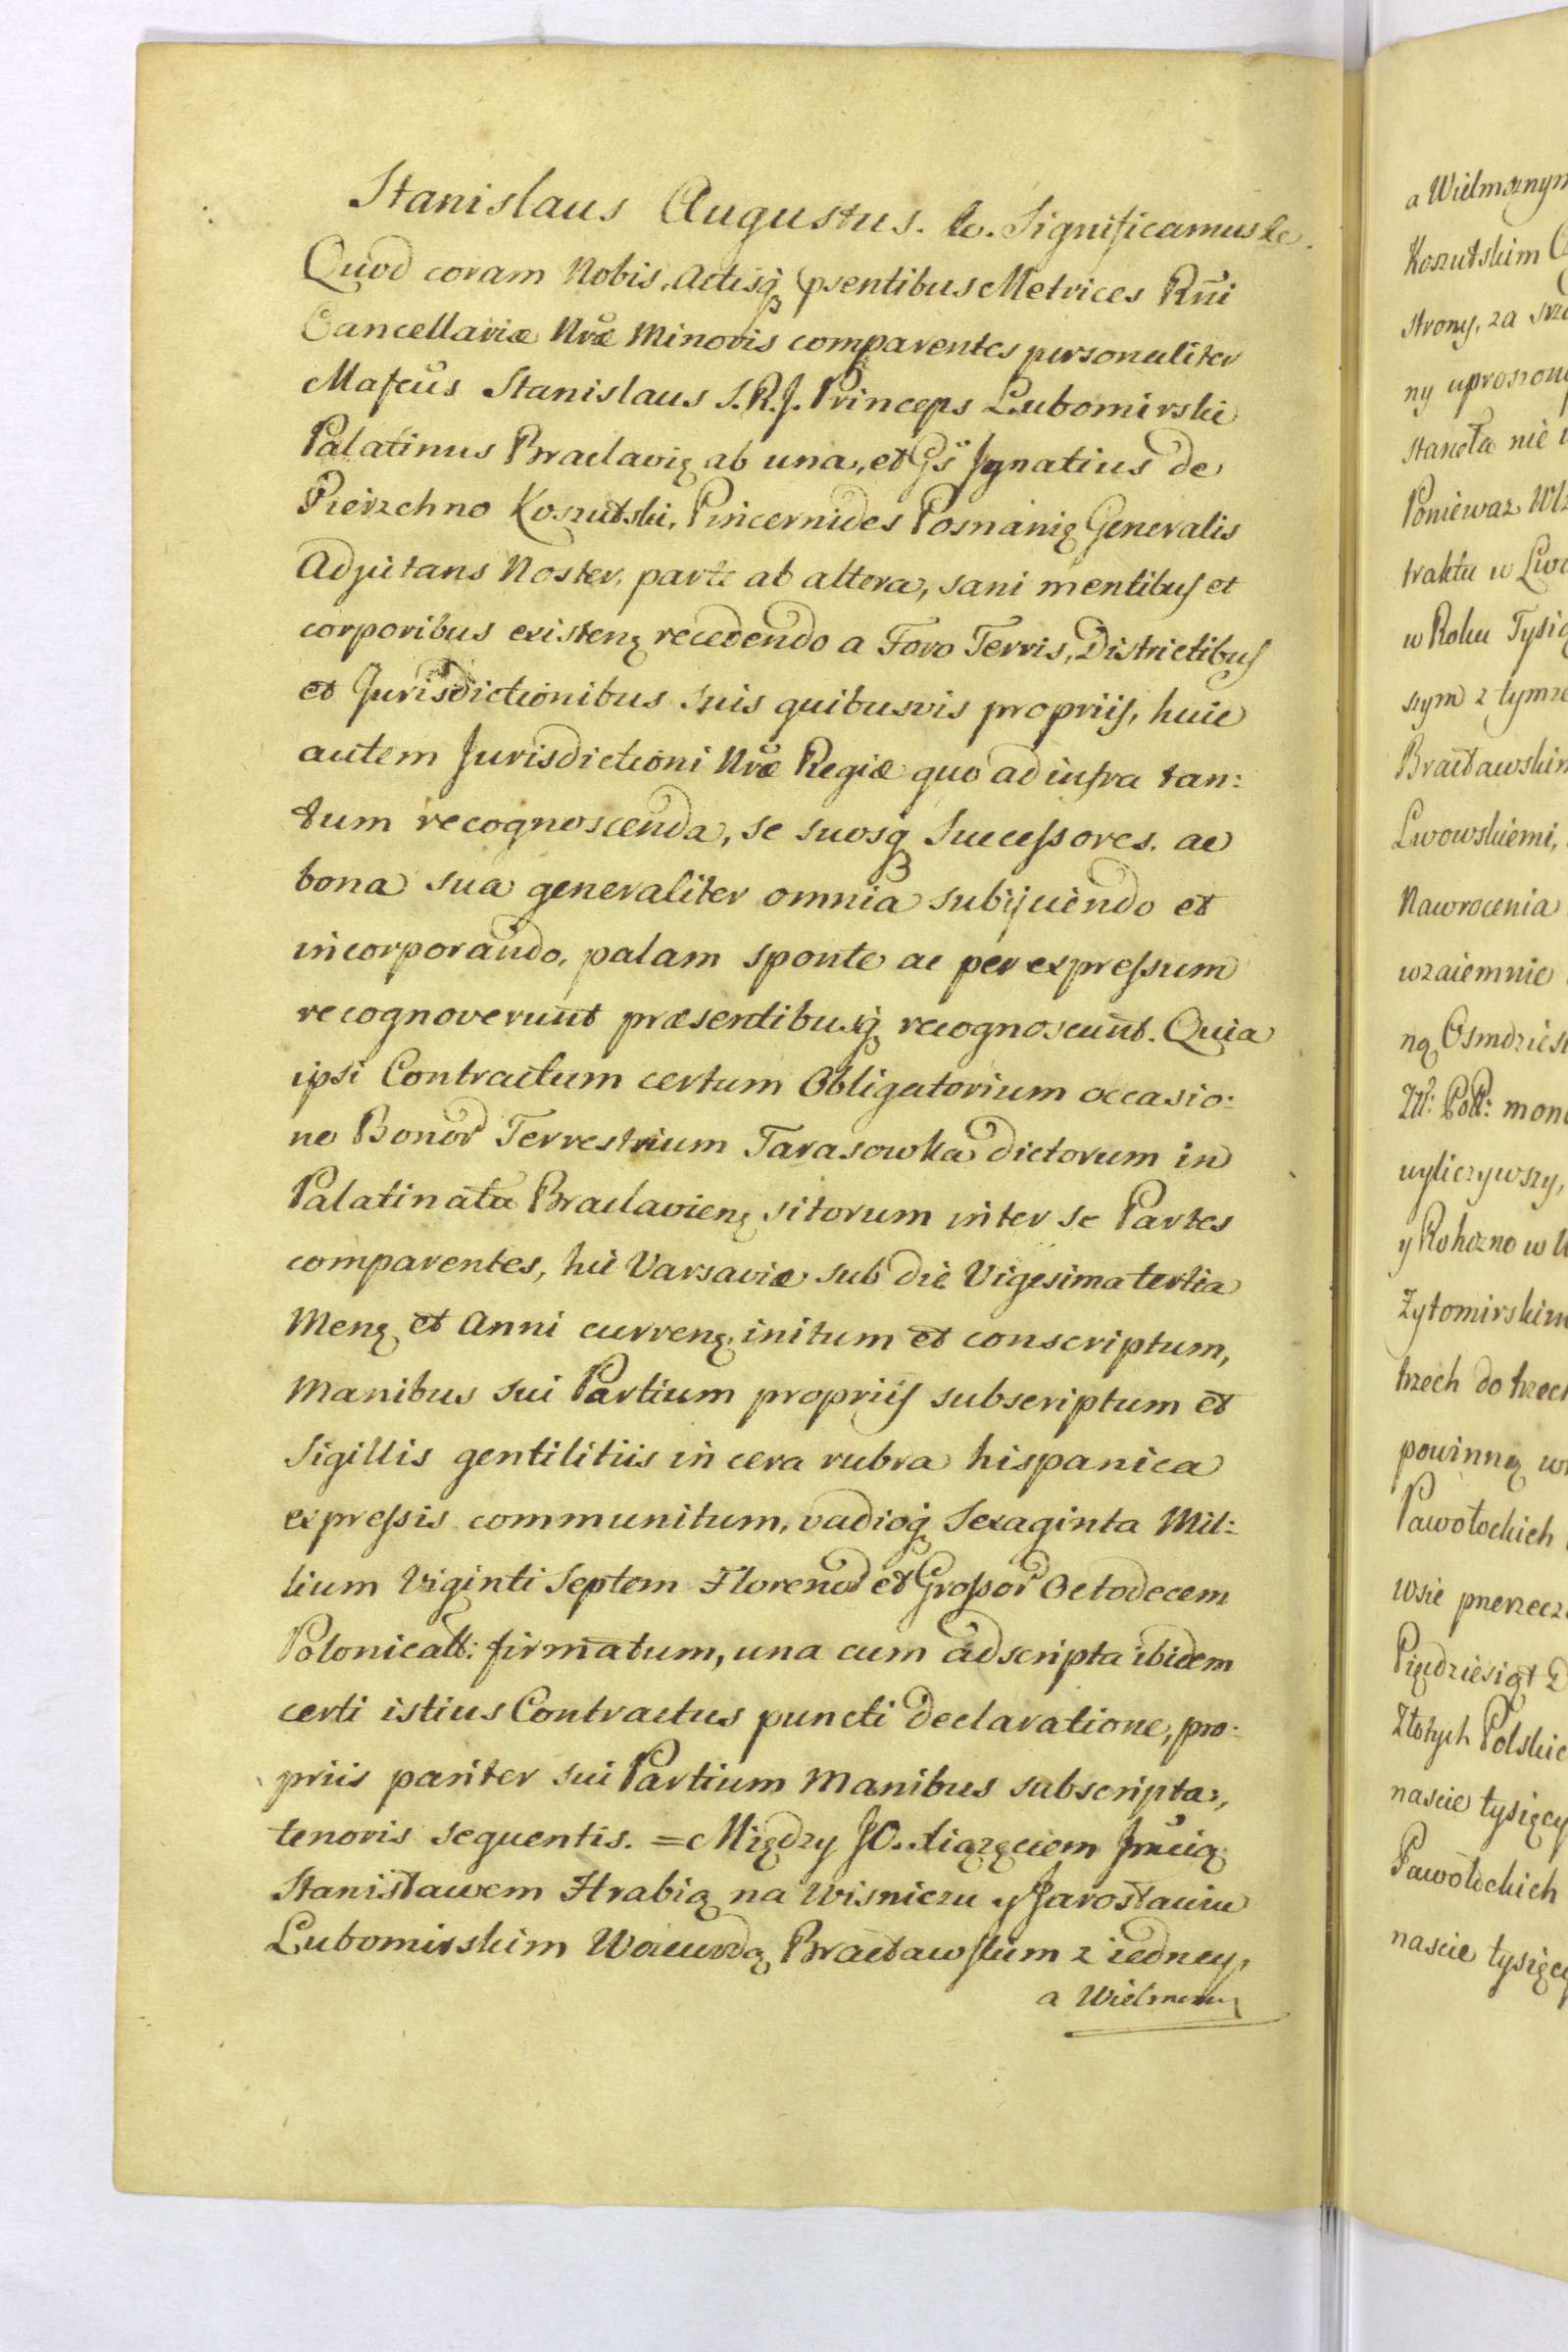 Stanislaus Augustus. &c. Significamus &c.
Quod coram Nobis, Actisq₃ pſentibus Metrices Rñi
Cancellariæ Nræ Minoris comparentes personaliter
Magcus Stanislaus S. R. J. Princeps Lubomirski
Palatinus Braclavię ab una, et Gs Ignatius de
Pierzchno Koszutski, Pincernides Posnanię Generalis
Adjutans Noster, parte ab altera, sani mentibus et
corporibus existenę recedendo a Foro Terris, Districtibus
et Jurisdictionibus suis quibusvis propriis, huic
autem Jurisdictioni Nræ Regiæ quo ad infra tan:
tum recognoscenda, se suosq₃ Succeſsores, ac
bona sua generaliter omnia subijciendo et
incorporando, palam sponte ac per expreſsum
recognoverunt præsentibusq₃ recognoscunt. Quia
ipsi Contractum certum Obligatorium occasio:
ne Bonor Terrestrium Tarasowka dictorum in
Palatinatu Braclavienę sitorum inter se Partes
comparentes, hic Varsaviæ sub die Vigesima tertia
Menę et Anni currenę, initum et conscriptum,
Manibus sui Partium propriis subscriptum et
Sigillis gentilitiis in cera rubra hispanica
expreſsis communitum, vadioq₃ Sexaginta Mil:
lium Viginti Septem Florenor et Groſsor Octodecem
Polonicall: firmatum, una cum adscripta ibidem
certi istius Contractus puncti declaratione, pro:
priis pariter sui Partium Manibus subscripta,
tenoris sequentis. = Między JO. Xiążęciem Jmcią
Stanisławem Hrabią na Wisniczu y Jarosławiu
Lubomirskim Woiewodą Bracławskim z iedney,
a Wielmożny
a Wielmożnym
Koszutskim
strony, za
ny uproszony
staneła nie
Poniewaz
traktu w
w Roku
szym z tymze
Bracławskim
Lwowskiemi,
Nawrocenia
wzaiemnie
ną
Zll: Poll:
wyliczywszy,
y Rohozno w
Zytomirskim
trzech do trzech
powinną
Pawołockich
wsie
Pięćdziesiąt
Złotych Polskich
nascie tysięcy
Pawołockich
nascie tysięcy